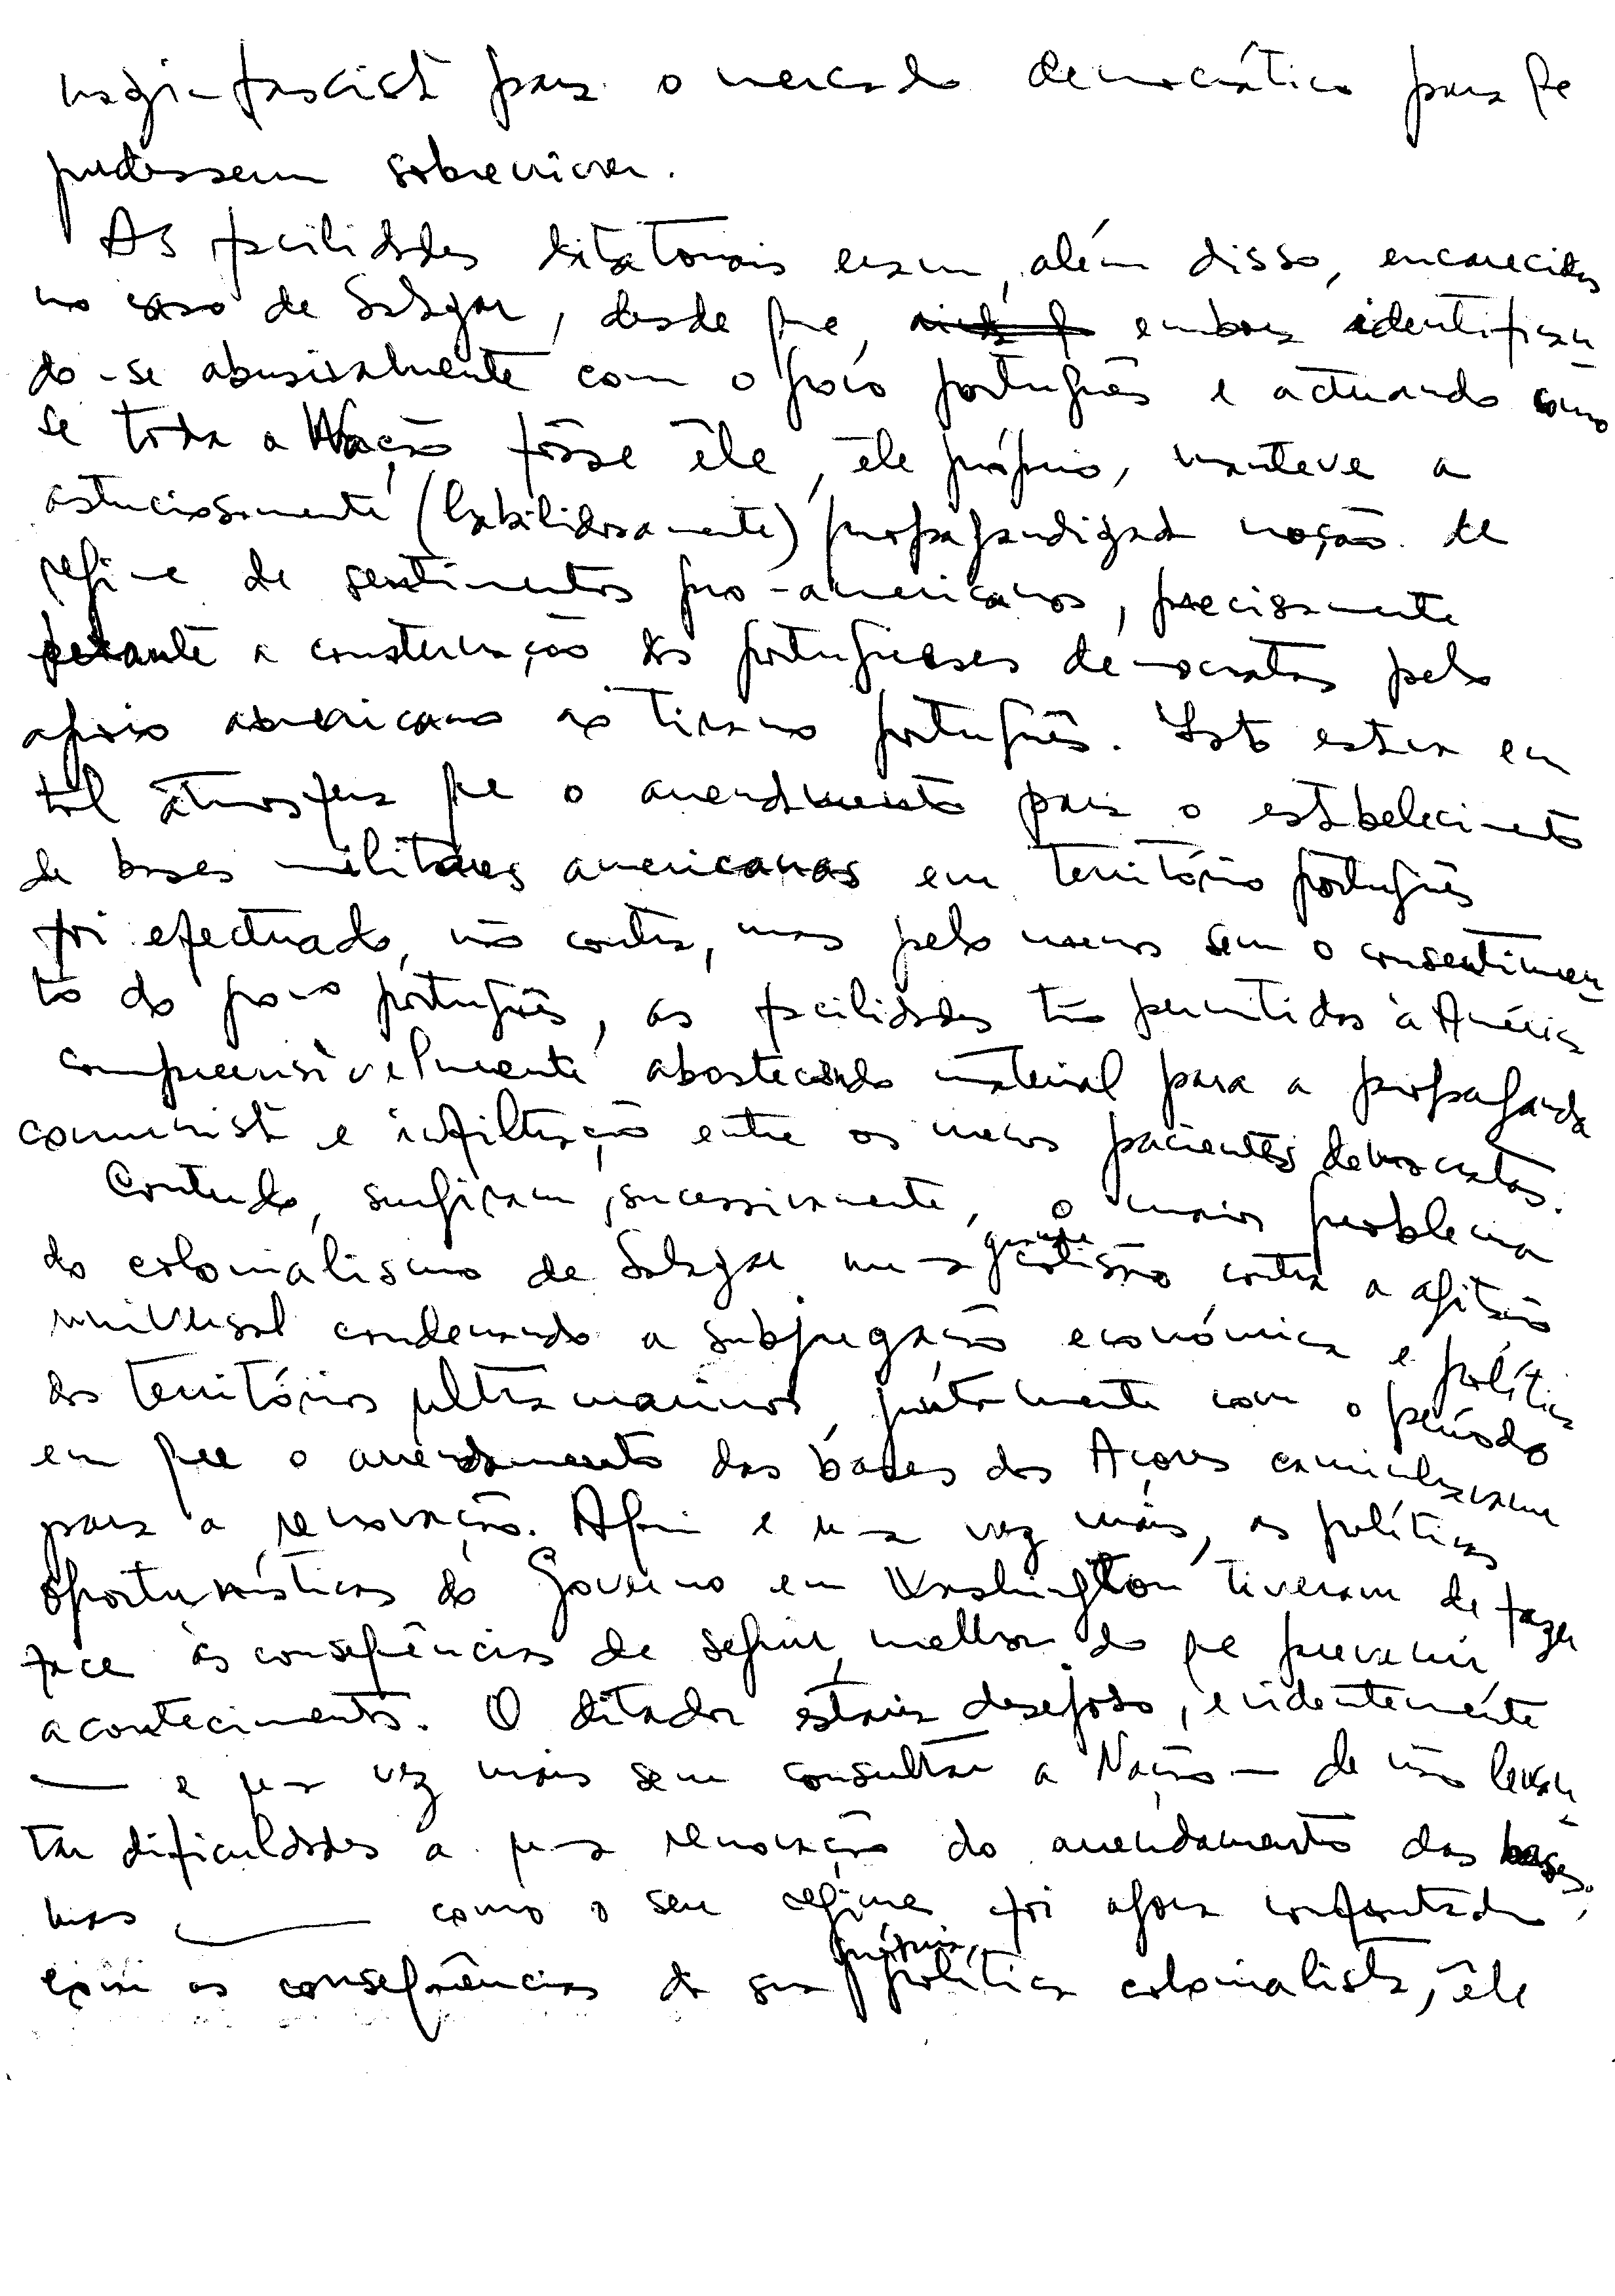 nazi-fascista para o mercado democrático para que
pudessem sobreviver.
As facilidades ditatoriais eram, além disso, encarecidas
no caso de Salazar, desde que, embora identifican-
do-se abusivamente com o povo português e actuando como
se toda a Nação fôsse êle, êle próprio, manteve a
astuciosamente (habilidosamente) propagandizada noção de
regime de sentimentos pro-americanos, precisamente
perante a consternação dos portugueses democratas pelo
apoio americano ao tirano português. Isto estava em
tal atmosfera que o arrendamento para o estabelecimento
de bases militares americanas em território português
foi efectuado, não contra, mas pelo menos sem o consentimen-
to do povo português, as facilidades tão permitidas à América
compreensìvelmente abastecendo material para a propaganda
comunista e infiltração entre os menos pacientes democratas.
Contudo, surgiram, sucessivamente, o maior problema
do colonialismo de Salazar numa grande colisão contra a agitação
universal condenando a subjugação económica e política
dos territórios ultramarinos, juntamente com o período
em que o arrendamento das bases dos Açores caminhavam
para a renovação. Aqui e uma vez mais, as políticas
oportunísticas do Governo em Washington tiveram de fazer
face às conseqüências de seguir, melhor do que prevenir
acontecimentos. O ditador estava desejoso, evidentemente
— e uma vez mais sem consultar a Nação — de não levan-
tar dificuldades a uma renovação do arrendamento das bases,
mas ——— como o seu regime foi agora confrontado
com as conseqüências da sua própria, política colonialista, êle